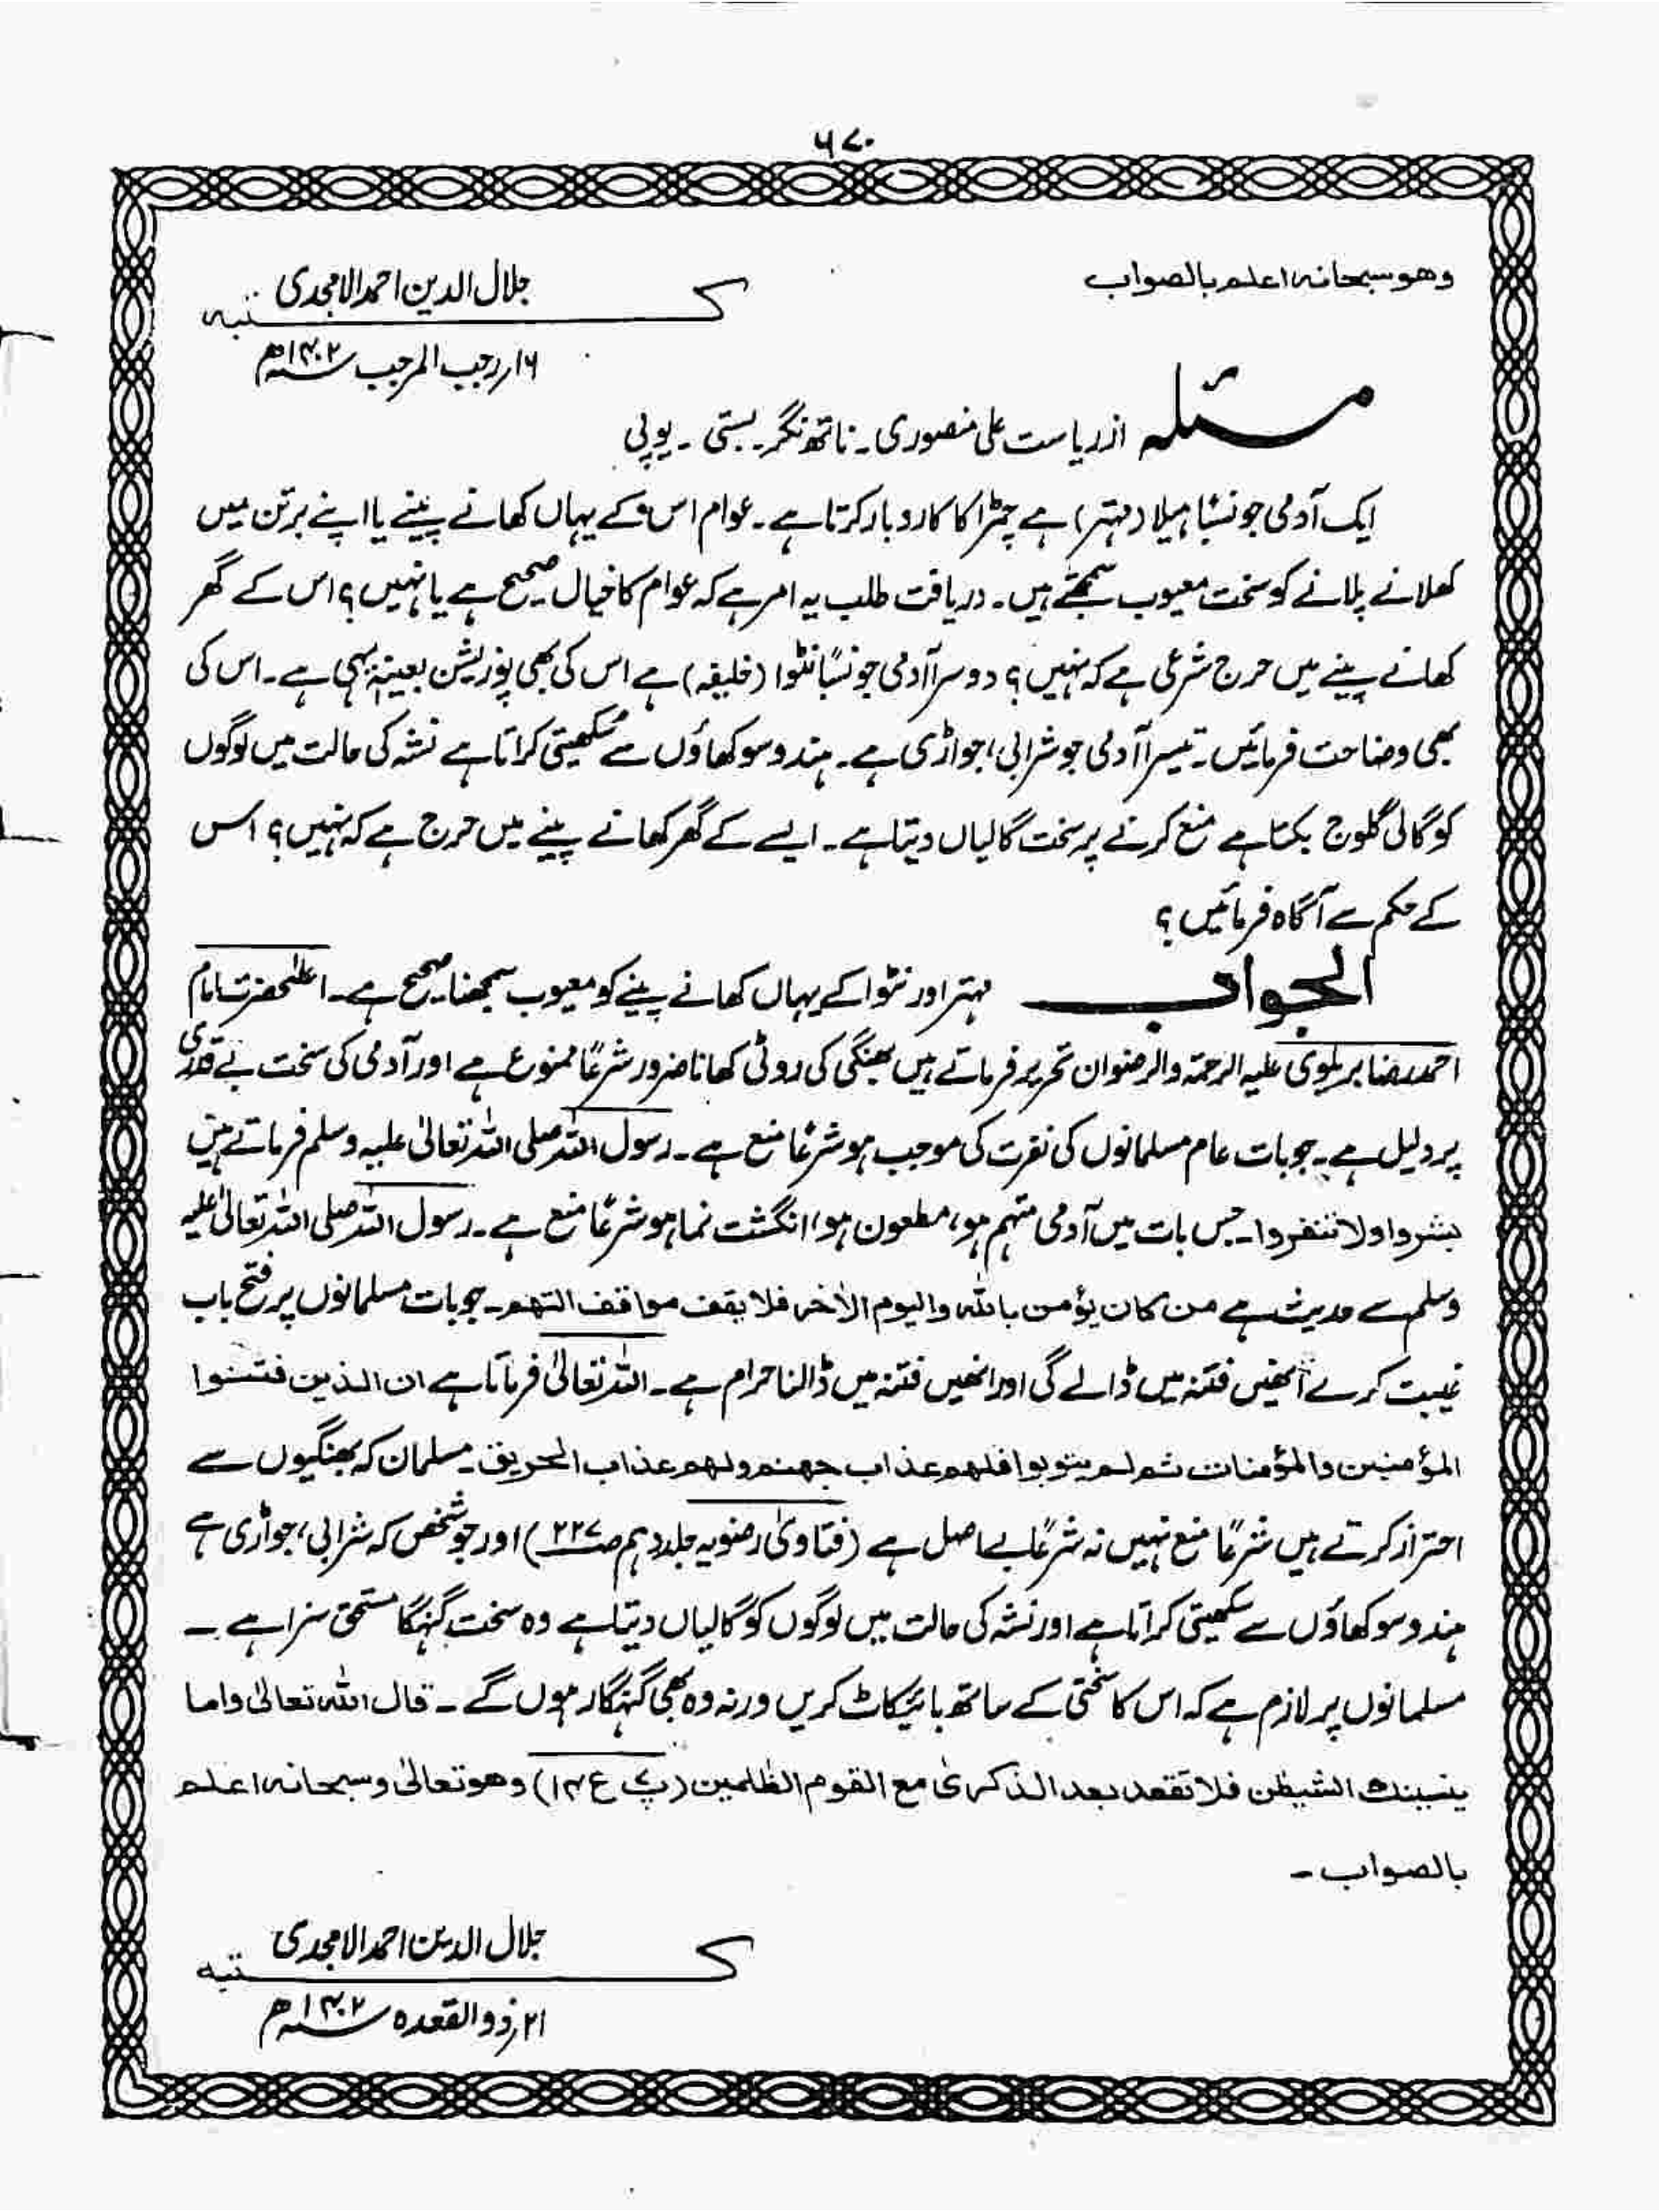 ۶۷۰
وھو سبحانہ اعلم بالصواب
جلال الدین احمد الامجدی
کتبہ
۱۶ رجب المرجب سنہ ۱۴۰۲ھ
مسئلہ از ریاست علی منصوری۔ ناتھ نگر۔ بستی۔ یوپی
ایک آدمی جو نسبًا ہیلا (مہتر) ہے چمڑا کا کاروبار کرتا ہے۔ عوام اس کے یہاں کھانے پینے یا اپنے برتن میں
کھلانے پلانے کو سخت معیوب سمجھتے ہیں۔ دریافت طلب یہ امر ہے کہ عوام کا خیال صحیح ہے یا نہیں؟ اس کے گھر
کھانے پینے میں حرج شرعی ہے کہ نہیں؟ دوسرا آدمی جو نسبًا نٹوا (خلیفہ) ہے اس کی بھی پوزیشن بعینہٖ یہی ہے۔ اس کی
بھی وضاحت فرمائیں۔ تیسرا آدمی جو شرابی، جواڑی ہے۔ ہندو سوکھاؤں سے سکھیتی کراتا ہے نشہ کی حالت میں لوگوں
کو گالی گلوج بکتا ہے منع کرنے پر سخت گالیاں دیتا ہے۔ ایسے کے گھر کھانے پینے میں حرج ہے کہ نہیں؟ اس
کے حکم سے آگاہ فرمائیں؟
الجواب مہتر اور نٹوا کے یہاں کھانے پینے کو معیوب سمجھنا صحیح ہے۔ اعلیٰحضرت امام
احمد رضا بریلوی علیہ الرحمۃ والرضوان تحریر فرماتے ہیں بھنگی کی روٹی کھانا ضرور شرعًا ممنوع ہے اور آدمی کی سخت بے قدری
پر دلیل ہے۔ جو بات عام مسلمانوں کی نفرت کی موجب ہو شرعًا منع ہے۔ رسول اللہ صلی اللہ تعالیٰ علیہ وسلم فرماتے ہیں
بشروا ولا تنفروا۔ جس بات میں آدمی متہم ہو، مطعون ہو، انگشت نما ہو شرعًا منع ہے۔ رسول اللہ صلی اللہ تعالیٰ علیہ
وسلم سے حدیث ہے من کان یؤمن باللہ والیوم الاٰخر فلا یقف مواقف التھم۔ جو بات مسلمانوں پر فتح باب
غیبت کرے انھیں فتنہ میں ڈالے گی اور انھیں فتنہ میں ڈالنا حرام ہے۔ اللہ تعالیٰ فرماتا ہے ان الذین فتنوا
المؤمنین والمؤمنات ثم لم یتوبوا فلھم عذاب جھنم ولھم عذاب الحریق۔ مسلمان کہ بھنگیوں سے
احتراز کرتے ہیں شرعًا منع نہیں نہ شرعًا بے اصل ہے (فتاویٰ رضویہ جلد دہم ص ۲۲۷) اور جو شخص کہ شرابی، جواڑی ہے
ہندو سوکھاؤں سے سکھیتی کراتا ہے اور نشہ کی حالت میں لوگوں کو گالیاں دیتا ہے وہ سخت گنہگا مستحق سزا ہے۔
مسلمانوں پر لازم ہے کہ اس کا سختی کے ساتھ بائیکاٹ کریں ورنہ وہ بھی گنہگار ہوں گے۔ قال اللہ تعالیٰ واما
ینسینك الشیطٰن فلا تقعد بعد الذکرىٰ مع القوم الظٰلمین (پ۷ ع ۱۴) وھو تعالیٰ وسبحانہ اعلم
بالصواب۔
جلال الدین احمد الامجدی
کتبہ
۲۱ ذوالقعدہ سنہ ۱۴۰۲ھ